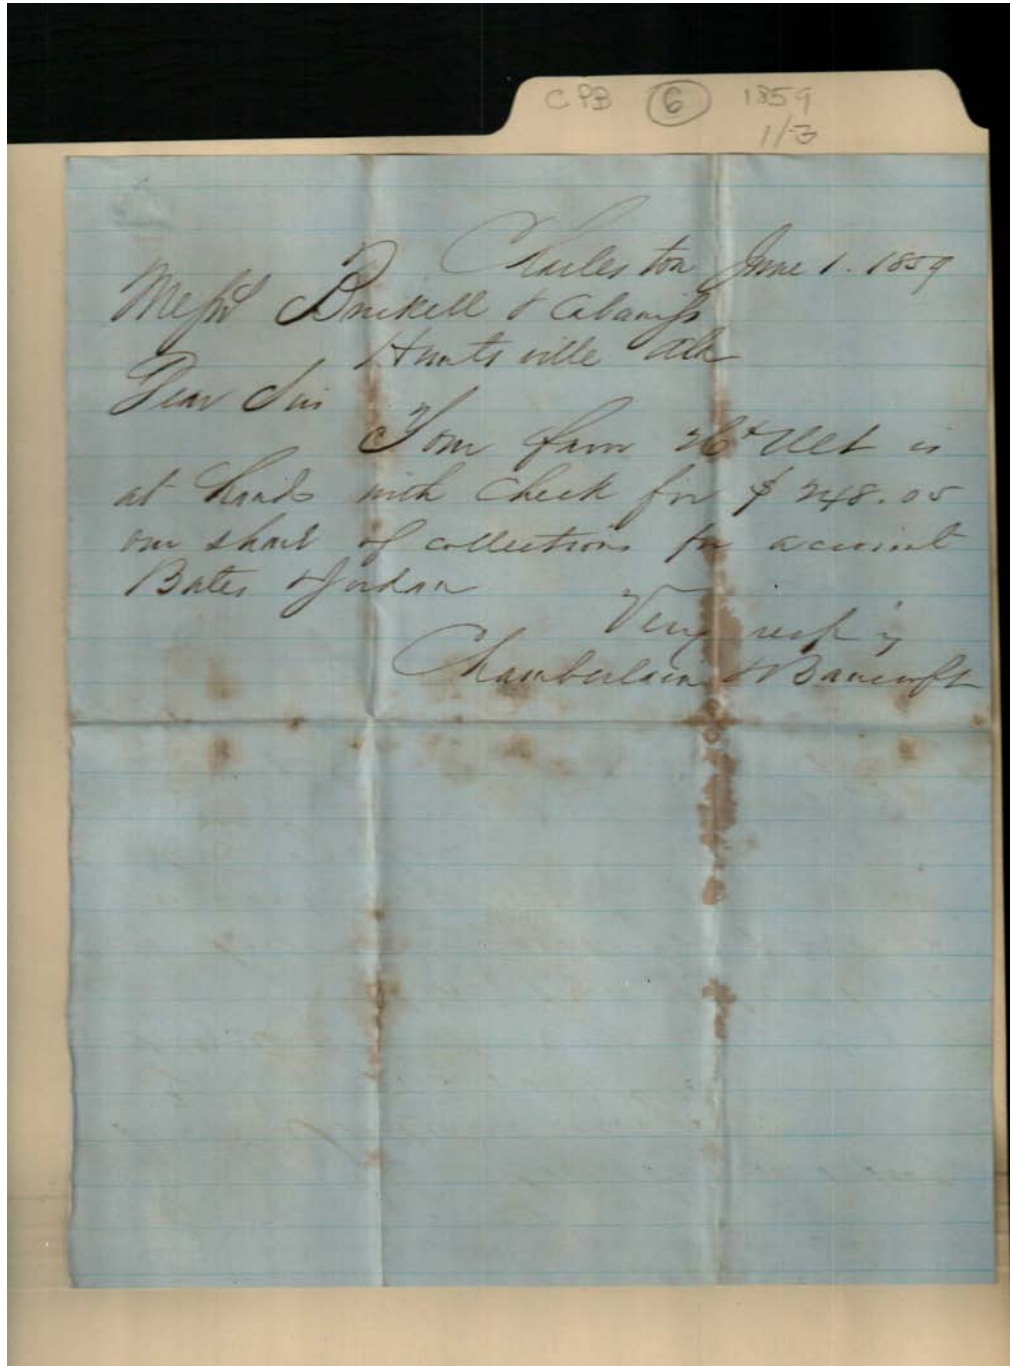 CPB 6 1859
1/3
Charleston June 1. 1859
Messrs Brickell & Cabaniss
Huntsville Ala
Dear Sirs
Your favor 26th Ult is
at hand with check for $ 248.05
our share of collections for account
Bates & Jordan
Very resp'y
Chamberlain & Bancroft